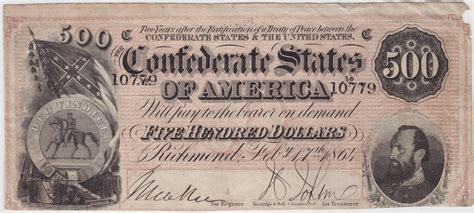 Two Years after the Ratification of a Treaty of Peace between the
CONFEDERATE STATES & THE UNITED STATES,
500 C THE C 500
Confederate States
10779 No 10779
OF AMERICA
Will pay to the bearer on demand
FIVE HUNDRED DOLLARS
Richmond, Feby. 17th 1864
DEO VINDICE
for Register Keatinge & Ball, Columbia, S.C. for Treasurer